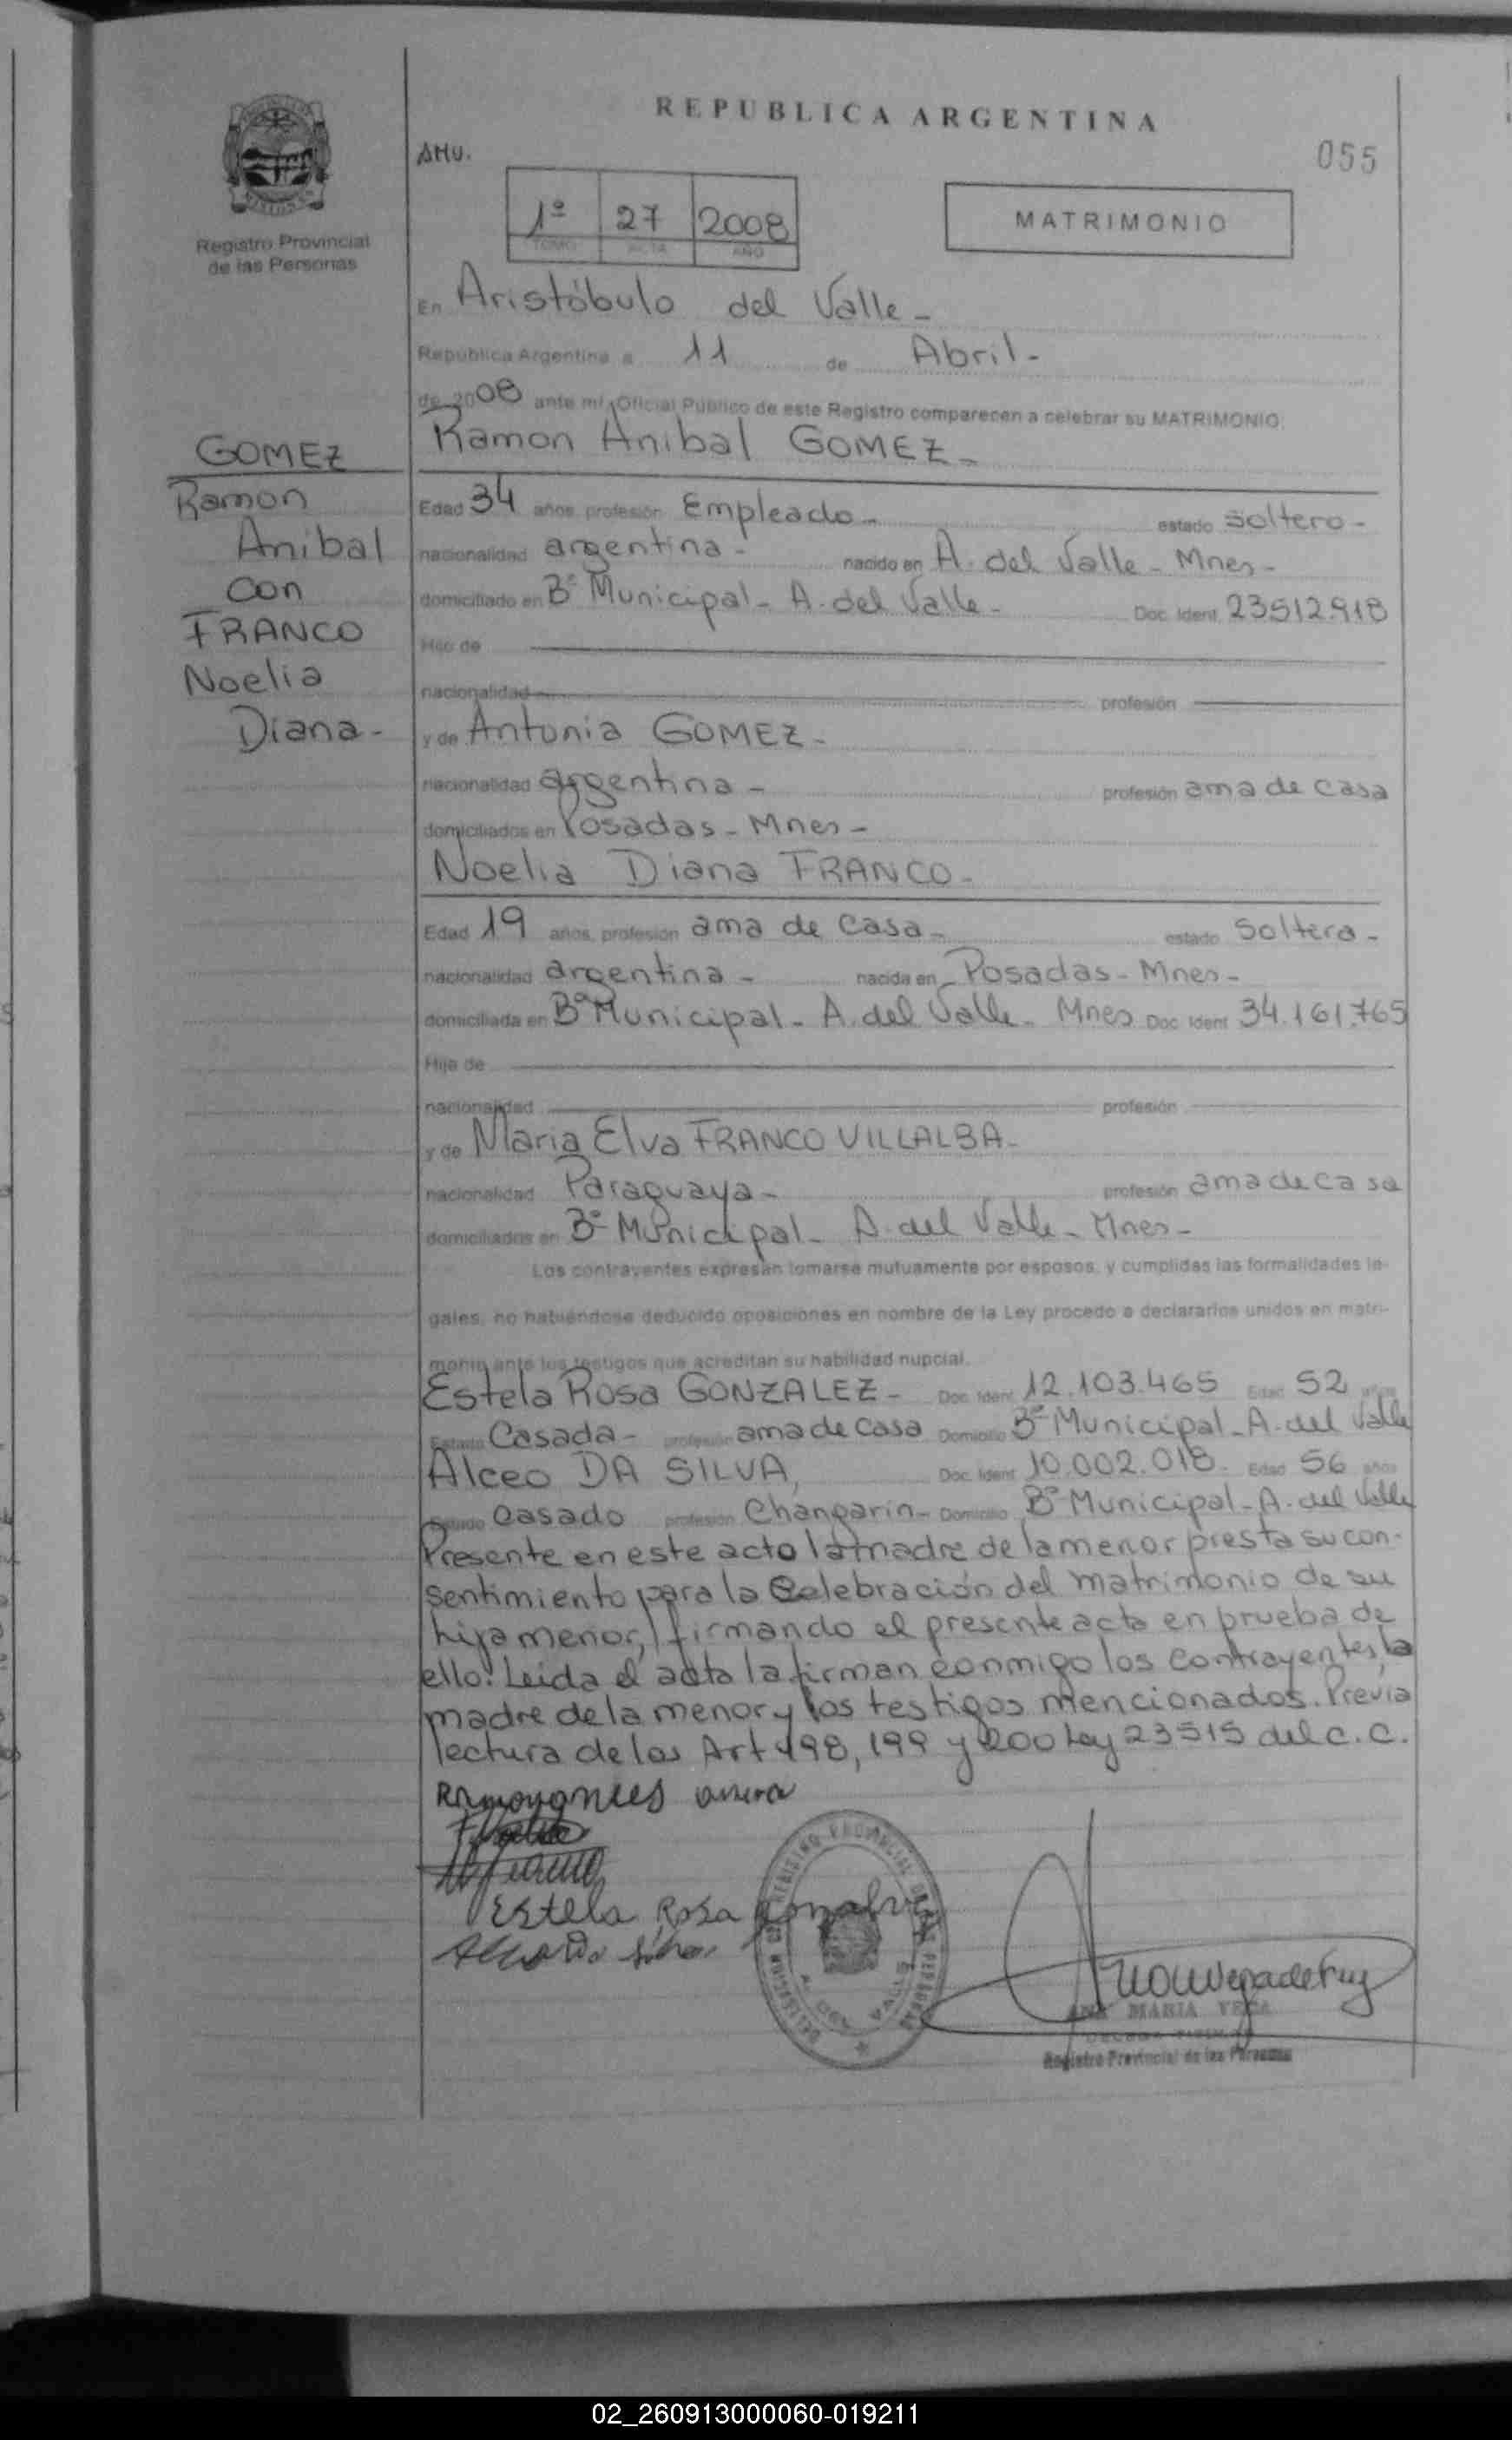 REPUBLICA ARGENTINA
AHU.
055
1º 27 2008
TOMO ACTA AÑO
MATRIMONIO
Registro Provincial
de las Personas
En Aristóbulo del Valle -
República Argentina a 11 de Abril -
de 2008 ante mí, Oficial Público de este Registro comparecen a celebrar su MATRIMONIO:
Ramon Anibal GOMEZ -
GOMEZ
Ramon
Anibal
con
FRANCO
Noelia
Diana -
Edad 34 años, profesión Empleado - estado soltero -
nacionalidad argentina - nacido en A. del Valle - Mnes -
domiciliado en Bº Municipal - A. del Valle - Doc. Ident. 23512.918
Hijo de
nacionalidad profesión
y de Antonia GOMEZ -
nacionalidad argentina - profesión ama de casa
domiciliados en Posadas - Mnes -
Noelia Diana FRANCO -
Edad 19 años, profesión ama de casa - estado Soltera -
nacionalidad argentina - nacida en Posadas - Mnes -
domiciliada en Bº Municipal - A. del Valle - Mnes Doc. Ident. 34.161.765
Hija de
nacionalidad profesión
y de Maria Elva FRANCO VILLALBA -
nacionalidad Paraguaya - profesión ama de casa
domiciliados en Bº Municipal - A. del Valle - Mnes -
Los contrayentes expresan tomarse mutuamente por esposos, y cumplidas las formalidades le-
gales, no habiéndose deducido oposiciones en nombre de la Ley procedo a declararlos unidos en matri-
monio ante los testigos que acreditan su habilidad nupcial.
Estela Rosa GONZALEZ - Doc. Ident. 12.103.465 Edad 52 años
Estado Casada - profesión ama de casa Domicilio Bº Municipal - A. del Valle
Alceo DA SILVA, Doc. Ident. 10.002.018. Edad 56 años
Estado Casado profesión Changarin - Domicilio Bº Municipal - A. del Valle
Presente en este acto la madre de la menor presta su con-
sentimiento para la Celebración del matrimonio de su
hija menor, firmando el presente acta en prueba de
ello. Leida el acta la firman conmigo los contrayentes, la
madre de la menor y los testigos mencionados. Previa
lectura de los Art 198, 199 y 200 Ley 23515 del C. C.
Estela Rosa
ANA MARIA VEGA
Registro Provincial de las Personas
02_260913000060-019211